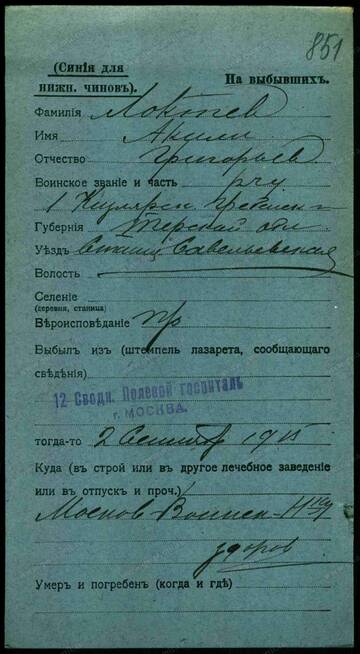 851
(Синія для
нижн. чиновъ).
На выбывшихъ.
Фамилія Локтев
Имя Аким
Отчество Григорьев
Воинское званіе и часть
1 Кизлярск Гребенск
Губернія Терской обл
Уѣздъ Станиц Савельевская
Волость
Селеніе
(деревня, станица)
Вѣроисповѣданіе пр
Выбылъ изъ (штемпель лазарета, сообщающаго
свѣдѣнія)
12 Сводн. Полевой госпиталь
г. МОСКВА.
тогда-то 2 Сентября 1915
Куда (въ строй или въ другое лечебное заведеніе
или въ отпускъ и проч.)
Москов Воинск Н-ку
здоров
Умеръ и погребенъ (когда и гдѣ)